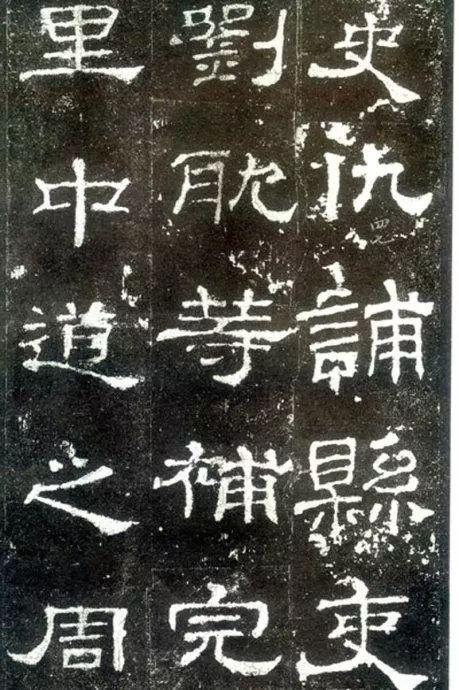 史仇誧縣吏
劉耽等補完
里中道之周